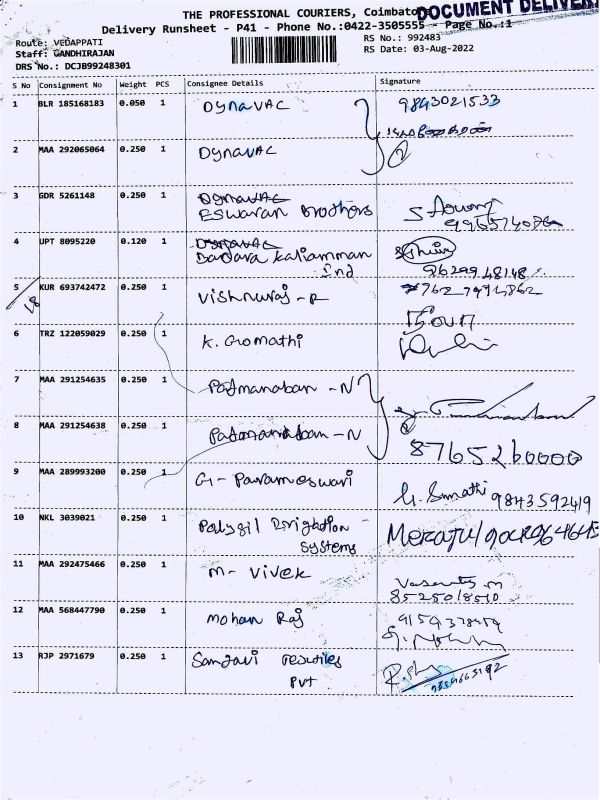 THE PROFESSIONAL COURIERS, Coimbatore
DOCUMENT DELIVERY
Delivery Runsheet - P41 - Phone No.:0422-3505555 - Page No.:1
Route: VEDAPPATI
Staff: GANDHIRAJAN
DRS No.: DCJB99248301
RS No.: 992483
RS Date: 03-Aug-2022
S No Consignment No Weight PCS Consignee Details Signature
1 BLR 185168183 0.050 1 DYNAVAC 9843021533
2 MAA 292065064 0.250 1 DYNAVAC 2
3 GDR 5261148 0.250 1 DYNAVAC
Eswaran Brothers
4 UPT 8095220 0.120 1 DYNAVAC
Badara Kaliamman
Ind 9629948148
5 KUR 693742472 0.250 1 Vishnuraj - R
6 TRZ 122059029 0.250 1 K. Gomathi
7 MAA 291254635 0.250 1 Patmanaban - N
8 MAA 291254638 0.250 1 Patmanaban - N
8765260000
9 MAA 289993200 0.250 1 G - Parameswari G. Sumathi 9843592419
10 NKL 3039021 0.250 1 Polysil Irrigation
Systems
11 MAA 292475466 0.250 1 M - Vivek
12 MAA 568447790 0.250 1 Mohan Raj
13 RJP 2971679 0.250 1 Sanjavi Textiles
Pvt